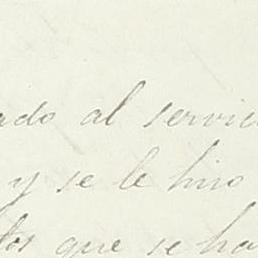 ado al servici
y se le hizo
tos que se ha